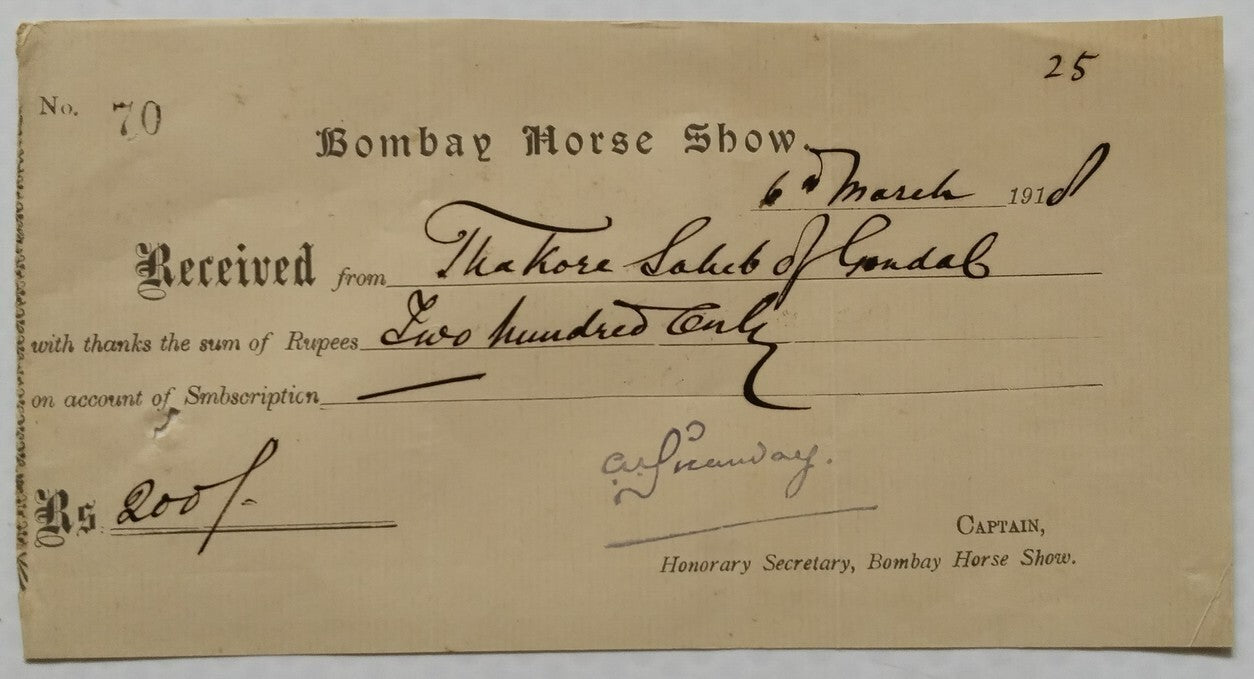 25
No. 70
Bombay Horse Show.
6th March 1918
Received from Thakore Saheb of Gondal
with thanks the sum of Rupees Two hundred Only
on account of Smbscription
Rs. 200/-
CAPTAIN,
Honorary Secretary, Bombay Horse Show.